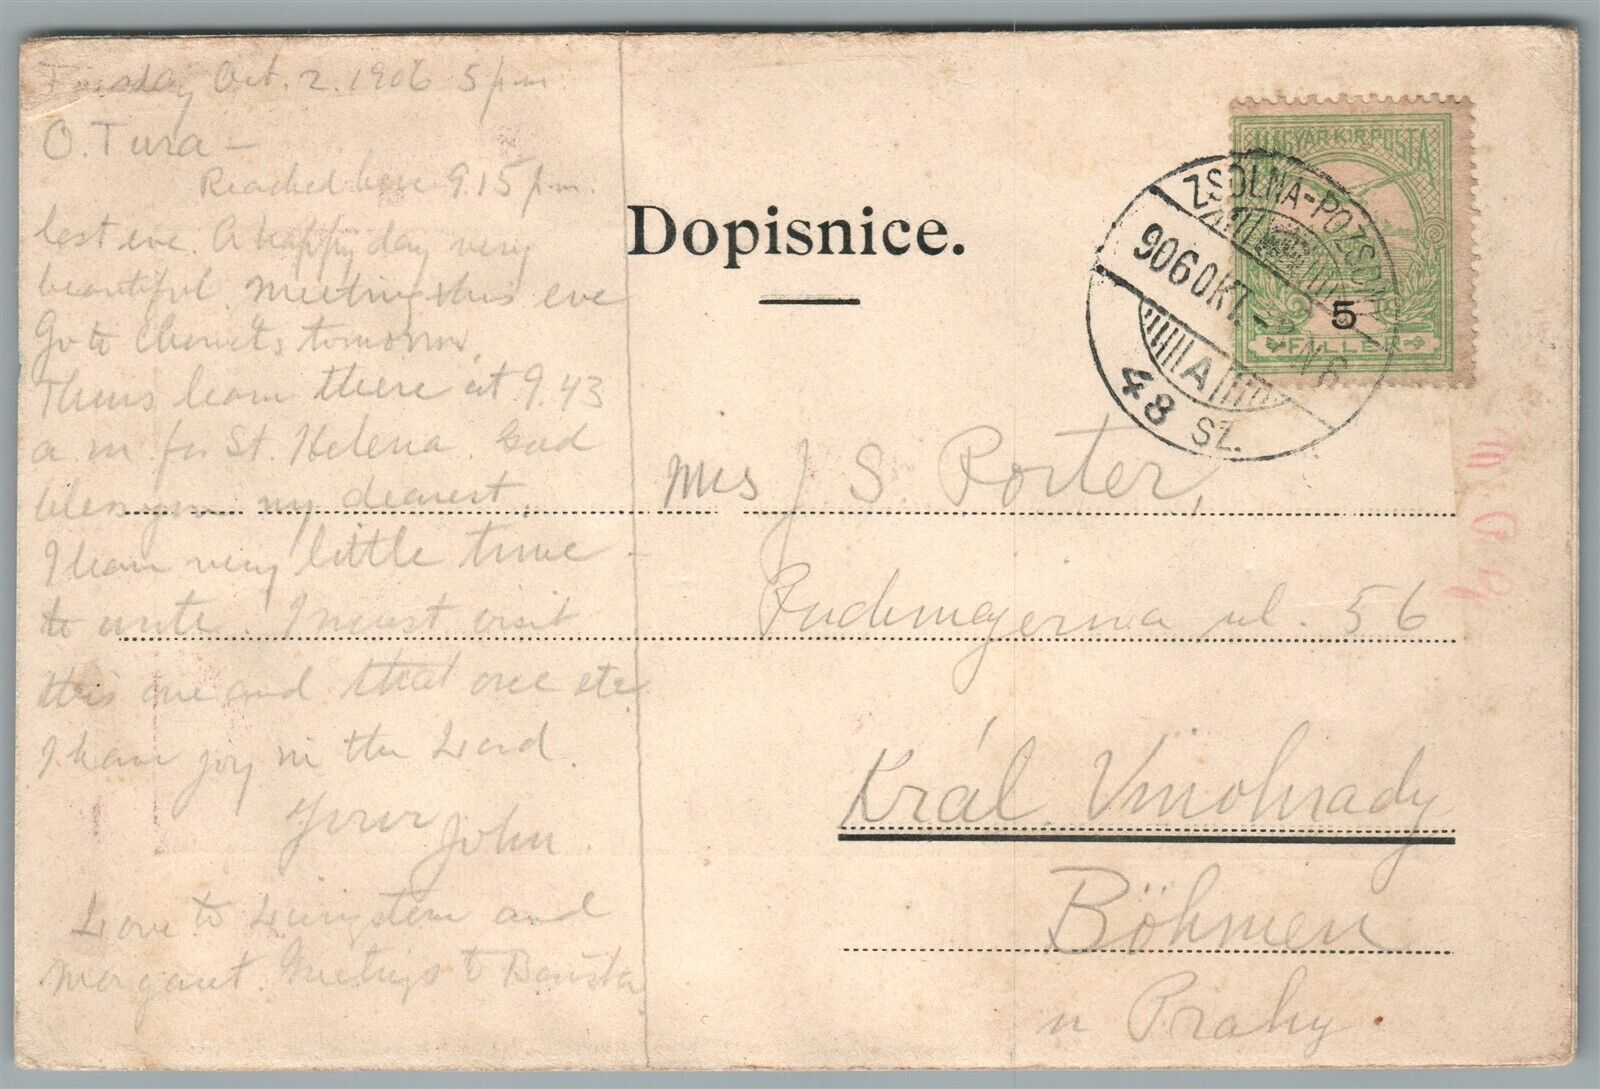 Tuesday Oct. 2. 1906 5 p.m.
O. Tura –
Reached here 9.15 p.m.
last eve. A happy day very
beautiful. Meeting this eve
Go to tomorrow.
Thurs leave there at 9.43
a m for St. Helena. God
bless you my dearest.
I have very little time –
to write. I must visit
this one and that one etc
I have joy in the Lord.
Your John.
Love to Livingston and
Margaret. Greetings to
Dopisnice.
MAGYAR KIR. POSTA
5
FILLÉR
ZSOLNA-POZSONY
906 OKT. -2 N 6
A
48 SZ.
Mrs J. S. Porter,
ul. 56
Král. Vinohrady
Böhmen
u Prahy.